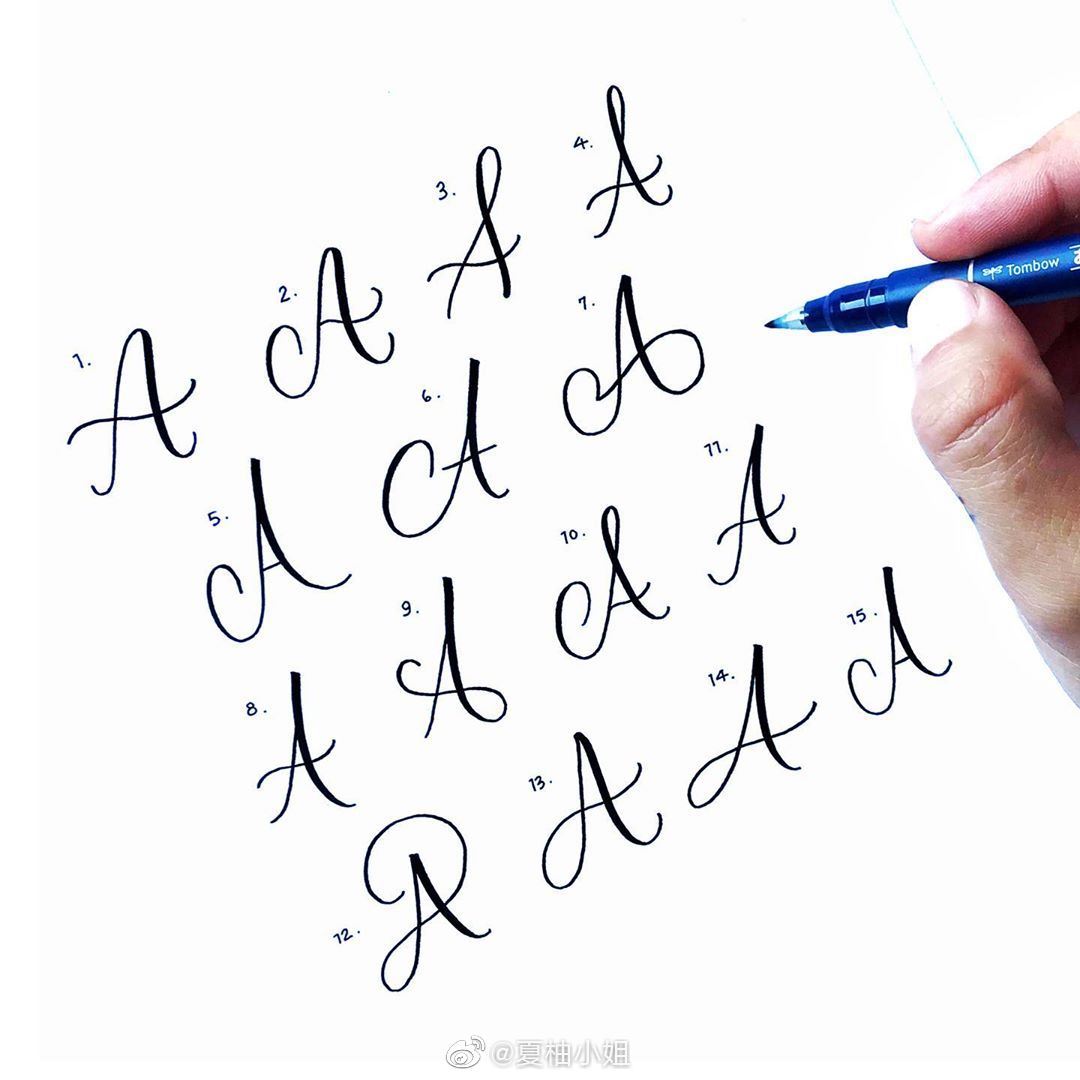 1. A
2. A
3. A
4. A
5. A
6. A
7. A
8. A
9. A
10. A
11. A
12. A
13. A
14. A
15. A
Tombow
@夏柚小姐